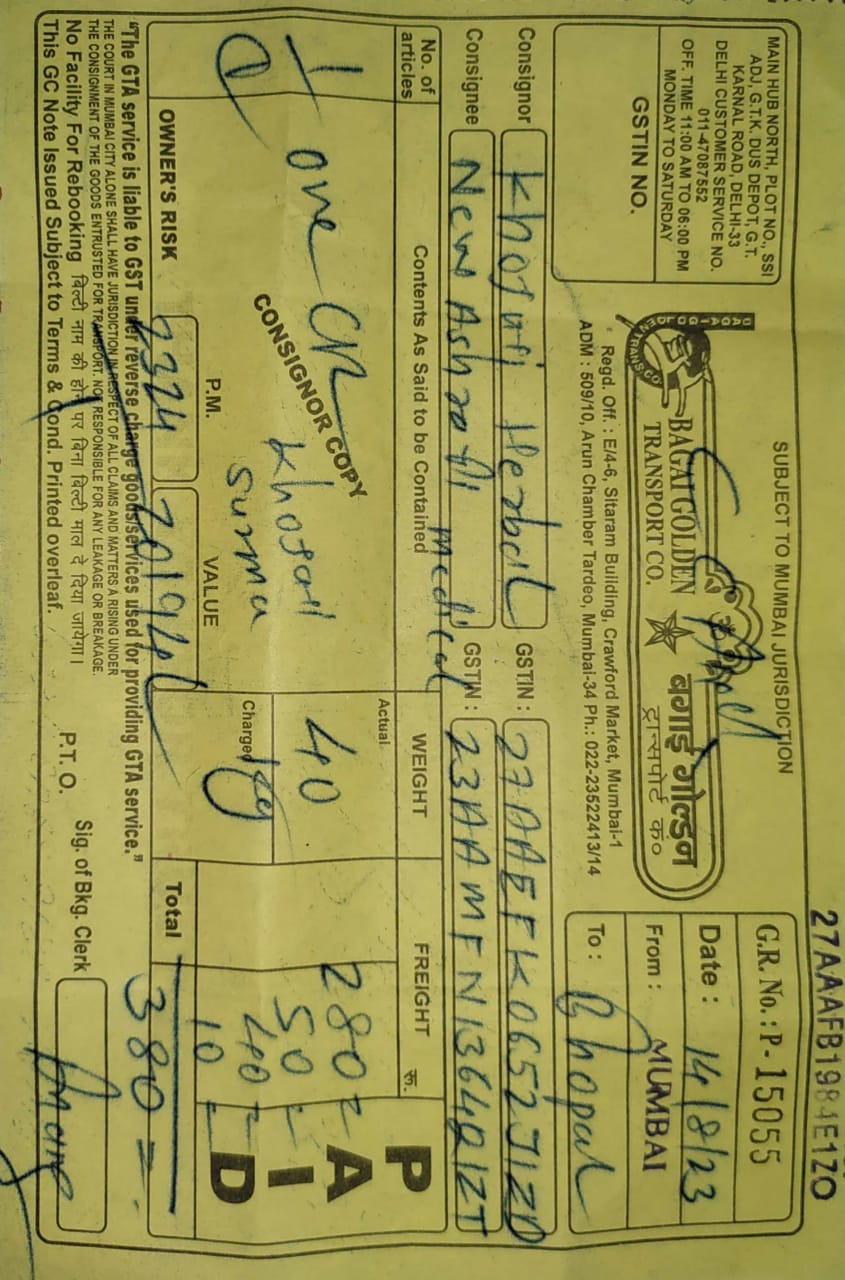 27AAAFB1984E1ZO
MAIN HUB NORTH, PLOT NO., SSI
ADJ, G.T.K. DUS DEPOT, G.T.
KARNAL ROAD, DELHI-33
DELHI CUSTOMER SERVICE NO.
011-47087552
OFF. TIME 11:00 AM TO 06:00 PM
MONDAY TO SATURDAY
GSTIN NO.
SUBJECT TO MUMBAI JURISDICTION
BAGAI GOLDEN
TRANSPORT CO.
बगाई गोल्डन
ट्रान्सपोर्ट कं०
Regd. Off. : E/4-6, Sitaram Building, Crawford Market, Mumbai-1
ADM : 509/10, Arun Chamber Tardeo, Mumbai-34 Ph.: 022-23522413/14
G.R. No.: P-15055
Date : 14/8/23
From : MUMBAI
To : Bhopal
Consignor Khojati Herbal GSTIN : 27AAEFK0652J1ZD
Consignee New Ashrafi Medical GSTIN : 23AAMFN1364Q1ZT
No. of articles Contents As Said to be Contained WEIGHT FREIGHT रू.
1 one CR Khojati Surma
CONSIGNOR COPY
Actual 40
Charged kg
280
50
40
10
PAID
OWNER'S RISK P.M. 2324 VALUE 20194/ Total 380 =
"The GTA service is liable to GST under reverse charge goods/services used for providing GTA service."
THE COURT IN MUMBAI CITY ALONE SHALL HAVE JURISDICTION IN RESPECT OF ALL CLAIMS AND MATTERS A RISING UNDER
THE CONSIGNMENT OF THE GOODS ENTRUSTED FOR TRANSPORT. NOT RESPONSIBLE FOR ANY LEAKAGE OR BREAKAGE.
No Facility For Rebooking बिल्टी नाम की होने पर बिना बिल्टी माल दे दिया जायेगा।
This GC Note Issued Subject to Terms & Cond. Printed overleaf.
P.T.O. Sig. of Bkg. Clerk